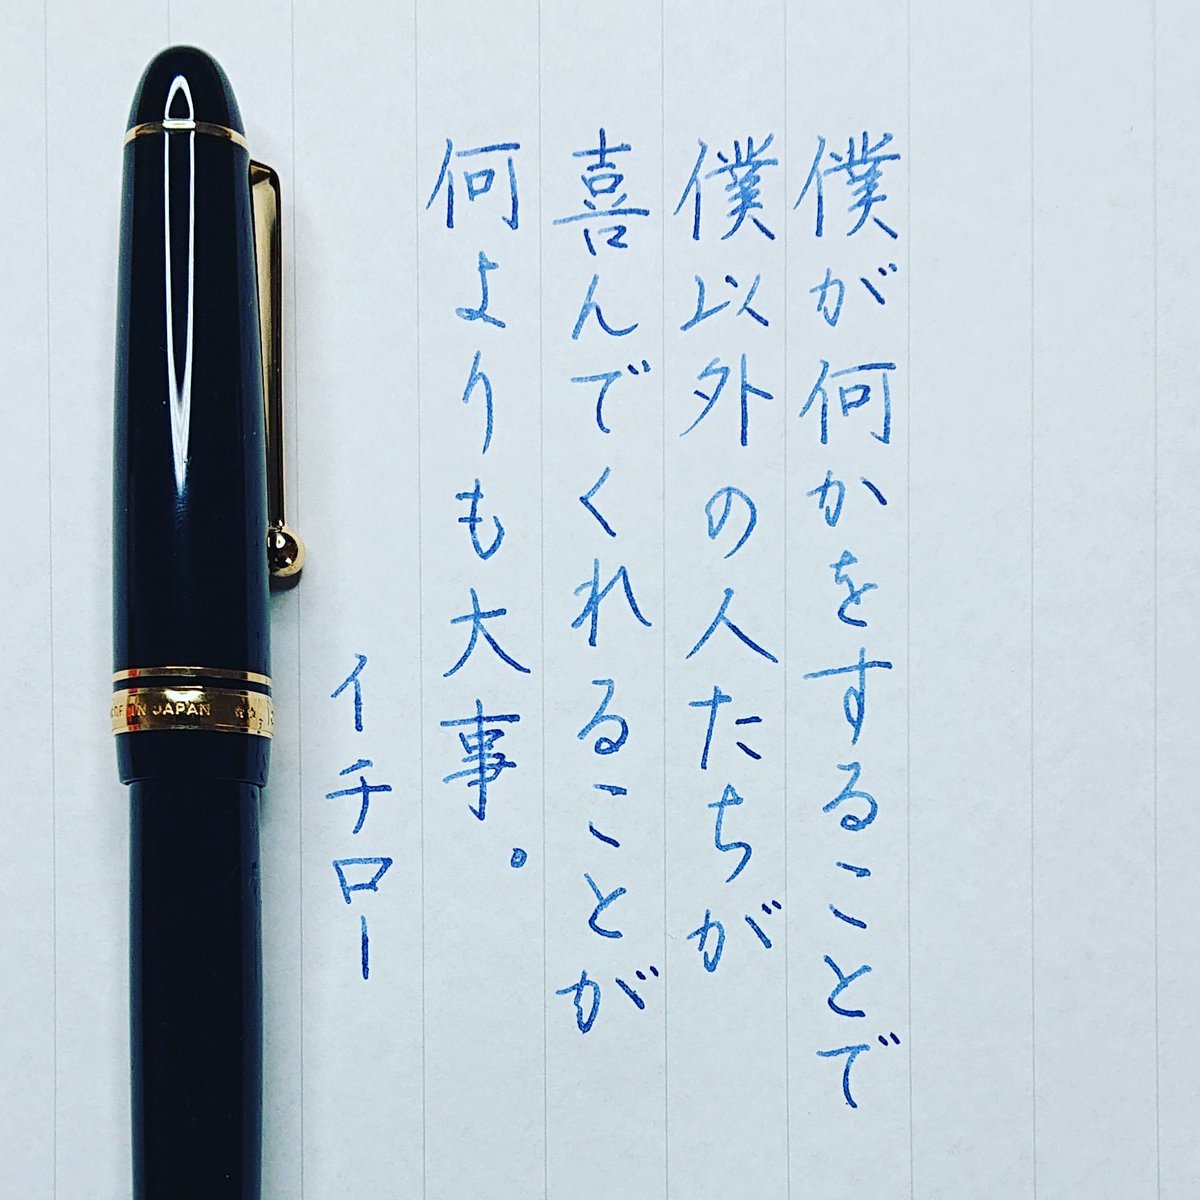 僕が何かをすることで
僕以外の人たちが
喜んでくれることが
何よりも大事。
イチロー
IN JAPAN